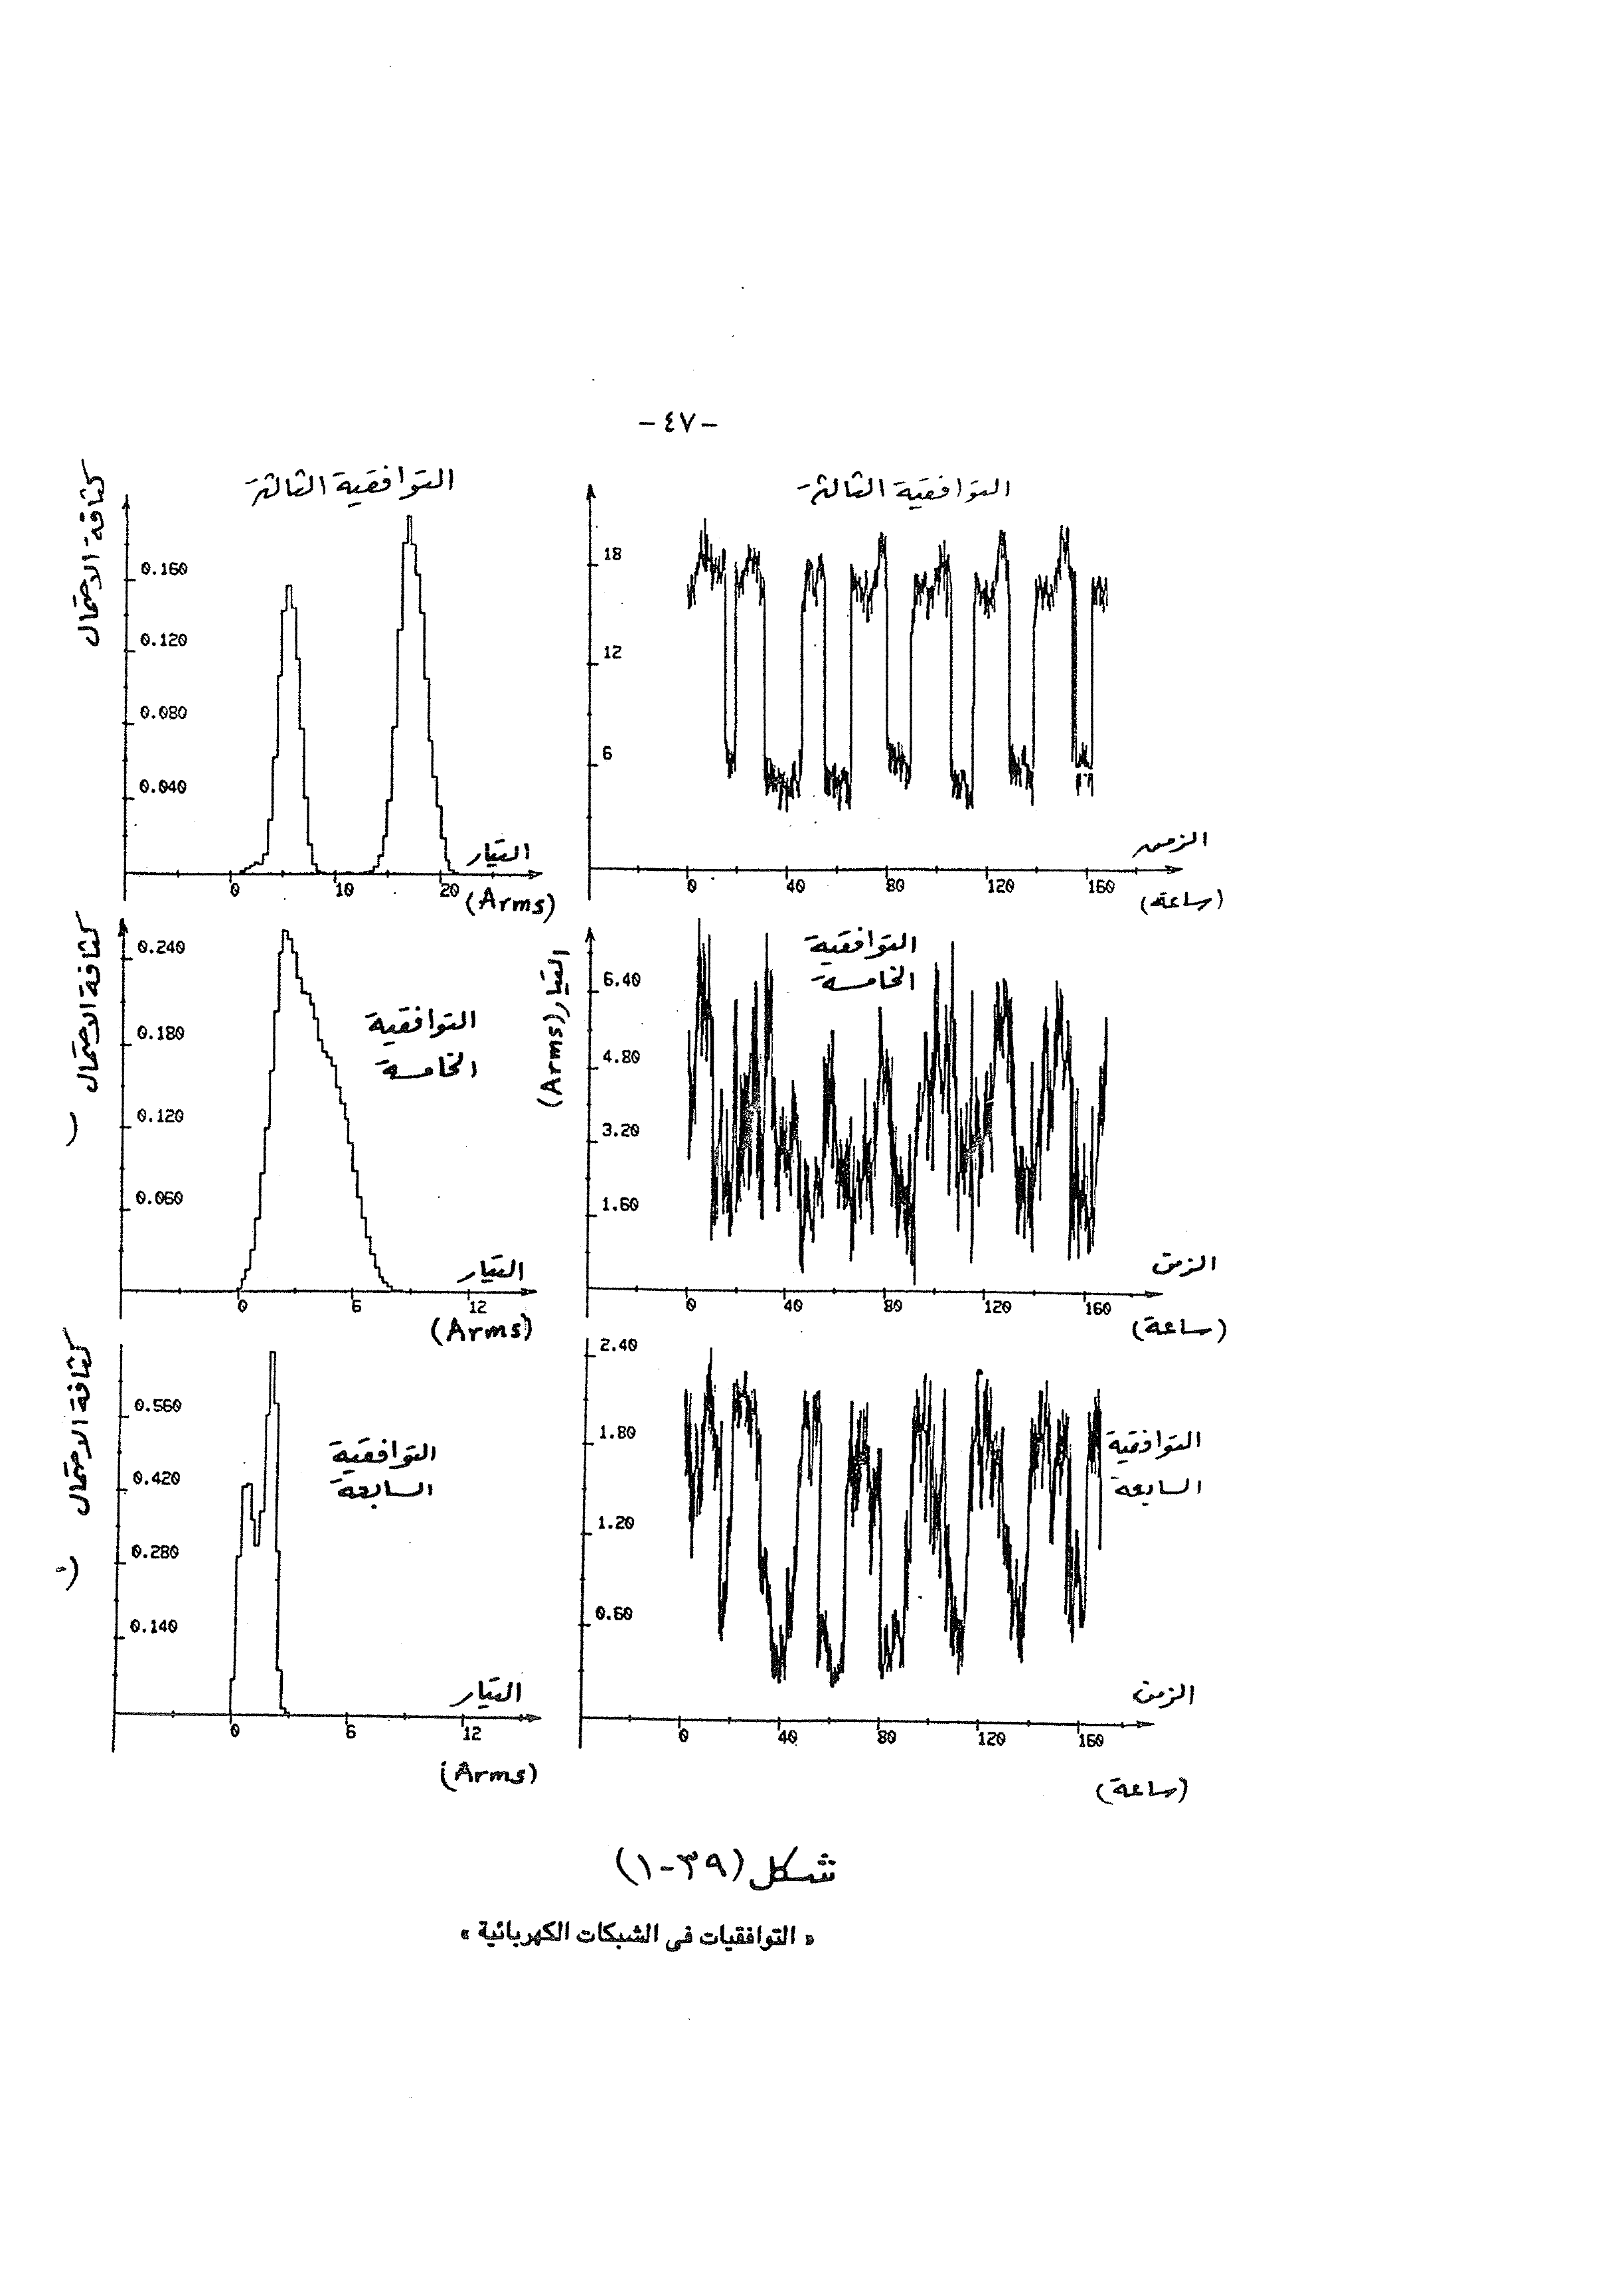 -٤٧-
التوافقية الثالثة
كثافة الاحتمال
0.160
0.120
0.080
0.040
0
10
20
التيار
(Arms)
التوافقية الثالثة
18
12
6
0
40
80
120
160
الزمن
(ساعة)
كثافة الاحتمال
0.240
0.180
0.120
0.060
التوافقية
الخامسة
0
6
12
التيار
(Arms)
التيار (Arms)
6.40
4.80
3.20
1.60
التوافقية
الخامسة
0
40
80
120
160
الزمن
(ساعة)
كثافة الاحتمال
0.560
0.420
0.280
0.140
التوافقية
السابعة
0
6
12
التيار
(Arms)
2.40
1.80
1.20
0.60
التوافقية
السابعة
0
40
80
120
160
الزمن
(ساعة)
شكل (٣٩-١)
« التوافقيات فى الشبكات الكهربائية »